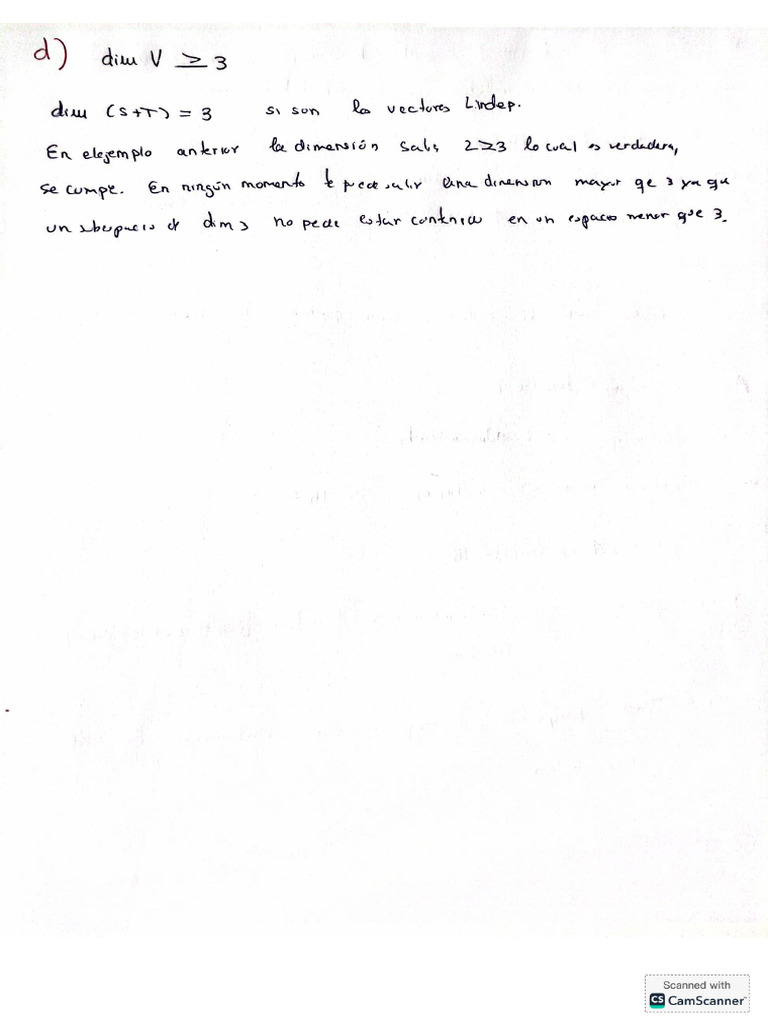 d) dim V ≥ 3
dim (S+T) = 3 si son los vectores L.indep.
En elejemplo anterior la dimensión 2≥3 lo cual es verdadera,
se cumple. En ningún momento te puede salir una dimension mayor qe 3 ya que
un de dim 3 no pede estar en un espacio menor que 3.
Scanned with
CS CamScanner